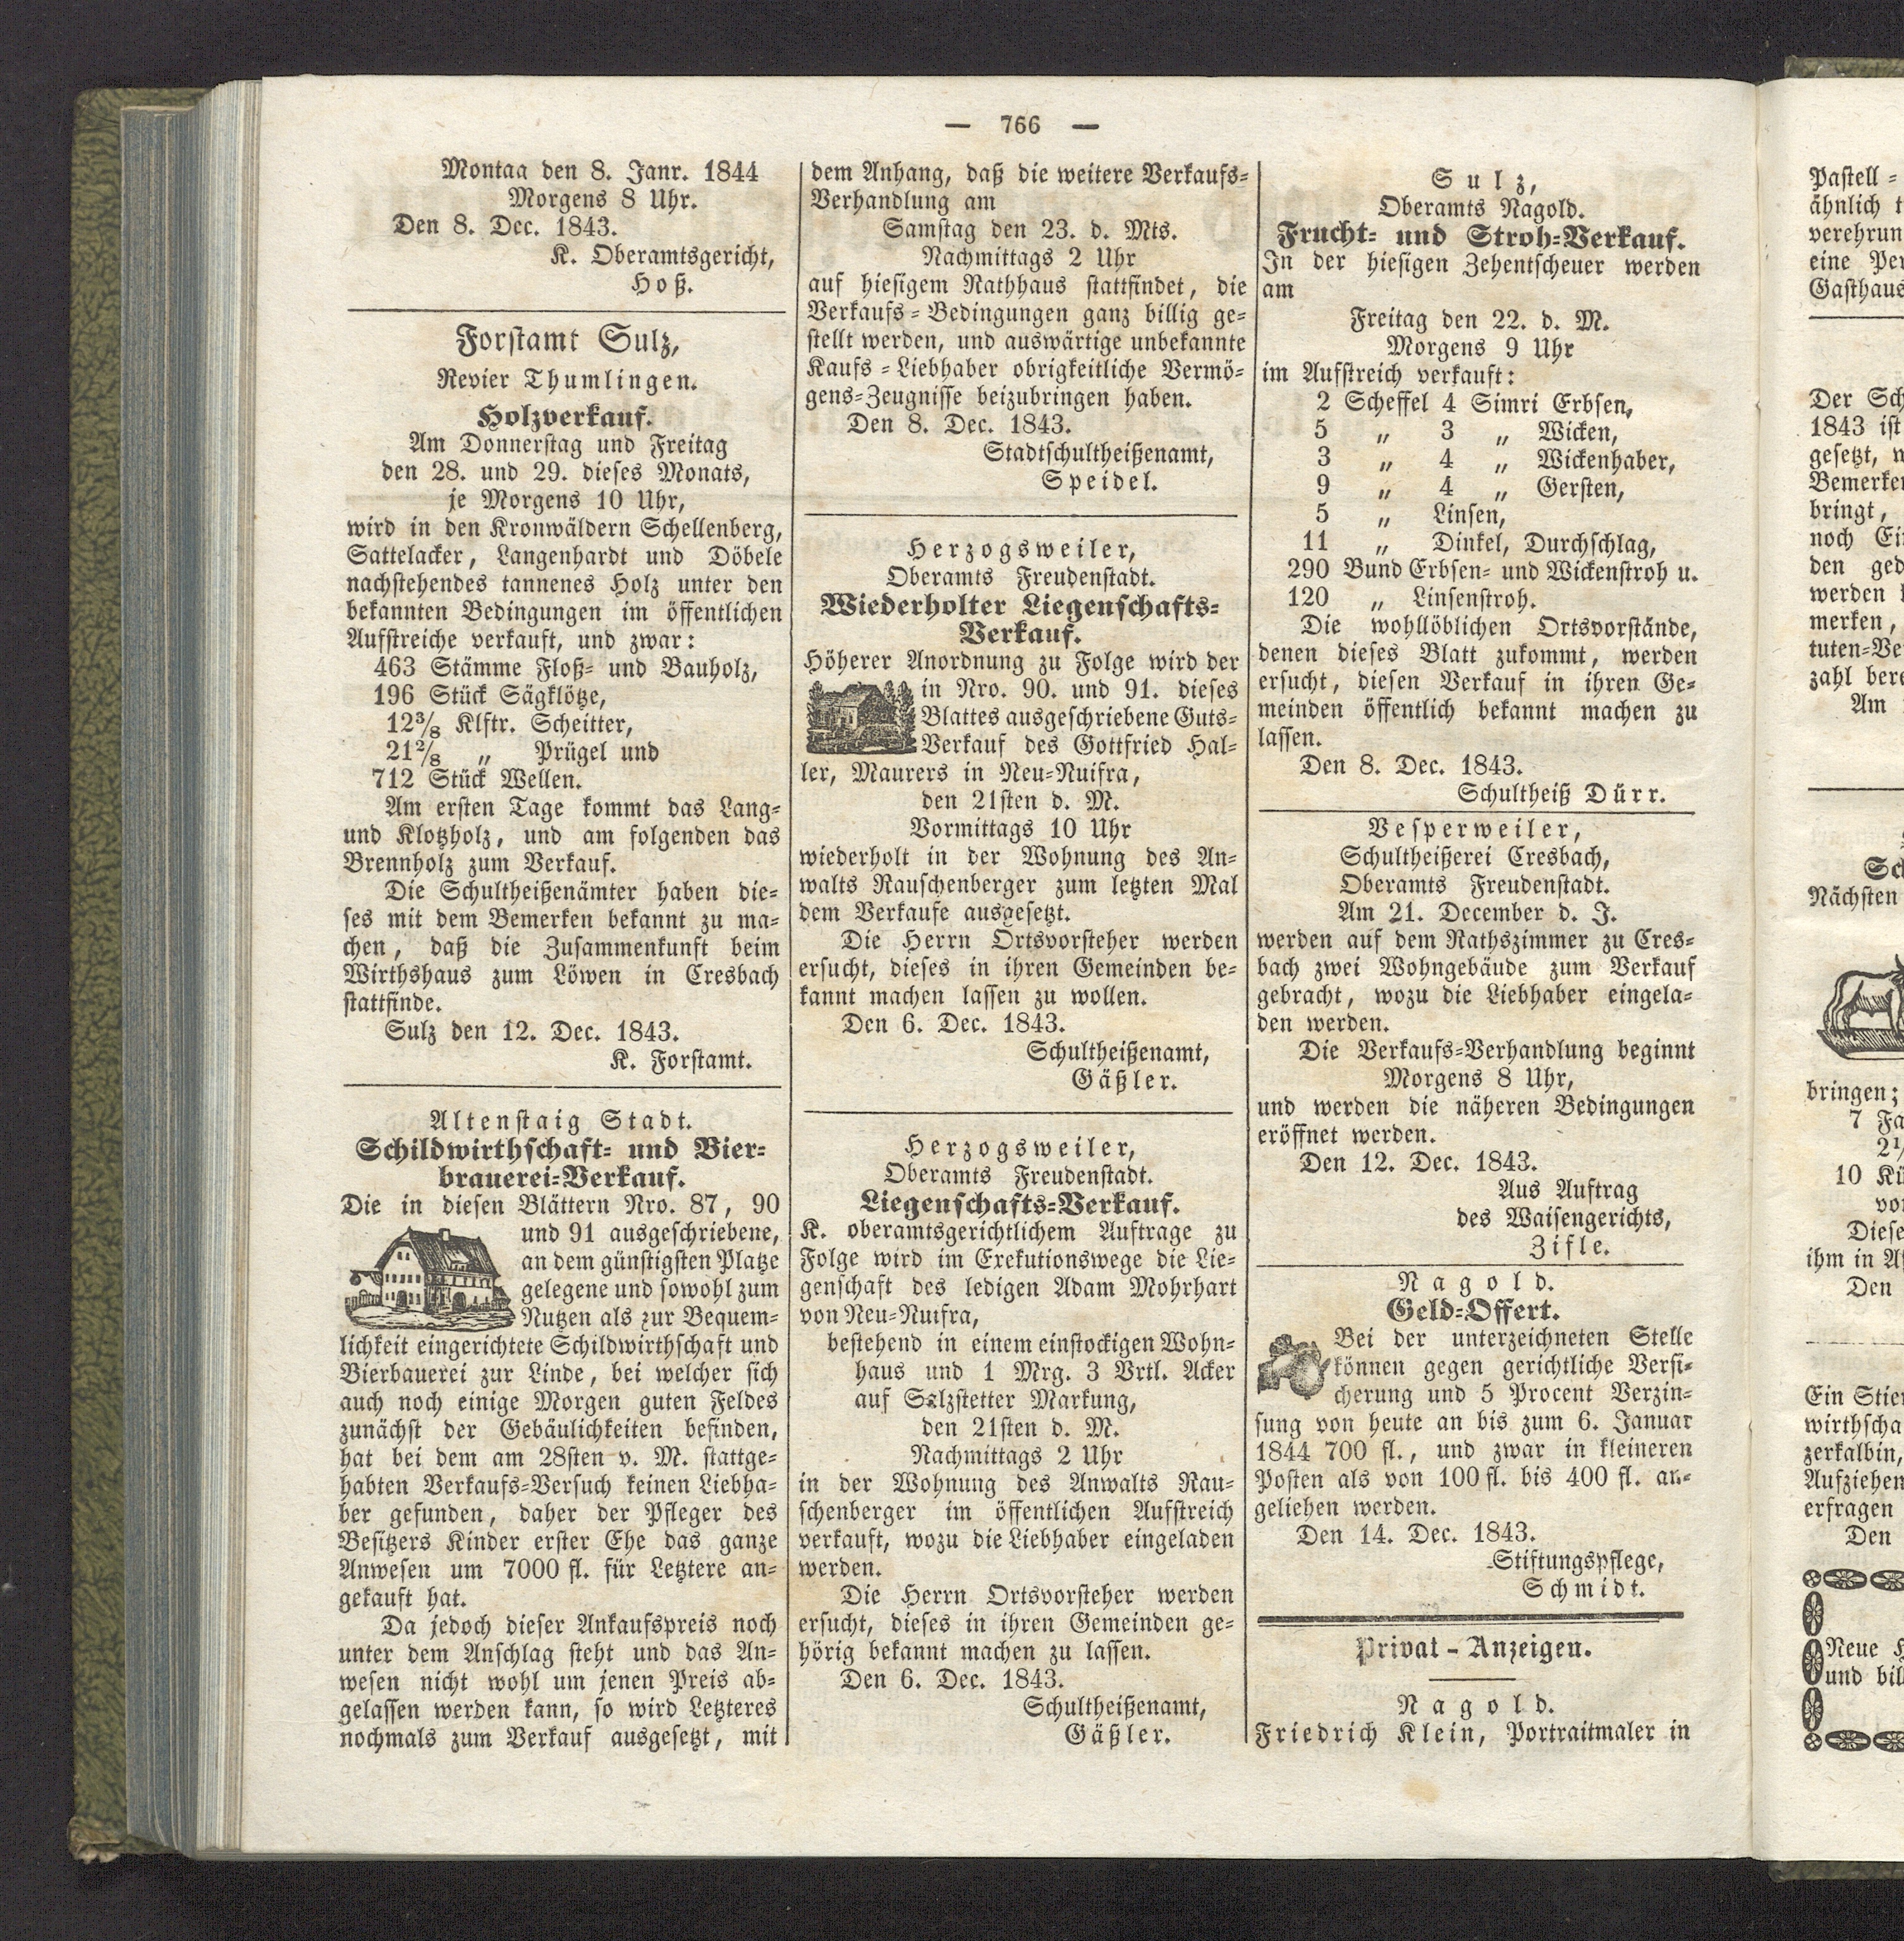 — 766 —
Montag den 8. Janr. 1844
Morgens 8 Uhr.
Den 8. Dec. 1843.
K. Oberamtsgericht,
Hoß.
Forstamt Sulz,
Revier Thumlingen.
Holzverkauf.
Am Donnerstag und Freitag
den 28. und 29. dieses Monats,
je Morgens 10 Uhr,
wird in den Kronwäldern Schellenberg,
Sattelacker, Langenhardt und Döbele
nachstehendes tannenes Holz unter den
bekannten Bedingungen im öffentlichen
Aufstreiche verkauft, und zwar:
463 Stämme Floß- und Bauholz,
196 Stück Sägklötze,
12 3/8 Klftr. Scheitter,
21 2/8 „ Prügel und
712 Stück Wellen.
Am ersten Tage kommt das Lang-
und Klotzholz, und am folgenden das
Brennholz zum Verkauf.
Die Schultheißenämter haben die-
ses mit dem Bemerken bekannt zu ma-
chen, daß die Zusammenkunft beim
Wirthshaus zum Löwen in Cresbach
stattfinde.
Sulz den 12. Dec. 1843.
K. Forstamt.
Altenstaig Stadt.
Schildwirthschaft- und Bier-
brauerei-Verkauf.
Die in diesen Blättern Nro. 87, 90
und 91 ausgeschriebene,
an dem günstigsten Platze
gelegene und sowohl zum
Nutzen als zur Bequem-
lichkeit eingerichtete Schildwirthschaft und
Bierbauerei zur Linde, bei welcher sich
auch noch einige Morgen guten Feldes
zunächst der Gebäulichkeiten befinden,
hat bei dem am 28sten v. M. stattge-
habten Verkaufs-Versuch keinen Liebha-
ber gefunden, daher der Pfleger des
Besitzers Kinder erster Ehe das ganze
Anwesen um 7000 fl. für Letztere an-
gekauft hat.
Da jedoch dieser Ankaufspreis noch
unter dem Anschlag steht und das An-
wesen nicht wohl um jenen Preis ab-
gelassen werden kann, so wird Letzteres
nochmals zum Verkauf ausgesetzt, mit
dem Anhang, daß die weitere Verkaufs-
Verhandlung am
Samstag den 23. d. Mts.
Nachmittags 2 Uhr
auf hiesigem Rathhaus stattfindet, die
Verkaufs-Bedingungen ganz billig ge-
stellt werden, und auswärtige unbekannte
Kaufs-Liebhaber obrigkeitliche Vermö-
gens-Zeugnisse beizubringen haben.
Den 8. Dec. 1843.
Stadtschultheißenamt,
Speidel.
Herzogsweiler,
Oberamts Freudenstadt.
Wiederholter Liegenschafts-
Verkauf.
Höherer Anordnung zu Folge wird der
in Nro. 90. und 91. dieses
Blattes ausgeschriebene Guts-
Verkauf des Gottfried Hal-
ler, Maurers in Neu-Nuifra,
den 21sten d. M.
Vormittags 10 Uhr
wiederholt in der Wohnung des An-
walts Rauschenberger zum letzten Mal
dem Verkaufe ausgesetzt.
Die Herrn Ortsvorsteher werden
ersucht, dieses in ihren Gemeinden be-
kannt machen lassen zu wollen.
Den 6. Dec. 1843.
Schultheißenamt,
Gäßler.
Herzogsweiler,
Oberamts Freudenstadt.
Liegenschafts-Verkauf.
K. oberamtsgerichtlichem Auftrage zu
Folge wird im Exekutionswege die Lie-
genschaft des ledigen Adam Mohrhart
von Neu-Nuifra,
bestehend in einem einstockigen Wohn-
haus und 1 Mrg. 3 Vrtl. Acker
auf Salzstetter Markung,
den 21sten d. M.
Nachmittags 2 Uhr
in der Wohnung des Anwalts Rau-
schenberger im öffentlichen Aufstreich
verkauft, wozu die Liebhaber eingeladen
werden.
Die Herrn Ortsvorsteher werden
ersucht, dieses in ihren Gemeinden ge-
hörig bekannt machen zu lassen.
Den 6. Dec. 1843.
Schultheißenamt,
Gäßler.
Sulz,
Oberamts Nagold.
Frucht- und Stroh-Verkauf.
In der hiesigen Zehentscheuer werden
am
Freitag den 22. d. M.
Morgens 9 Uhr
im Aufstreich verkauft:
2 Scheffel 4 Simri Erbsen,
5 „ 3 „ Wicken,
3 „ 4 „ Wickenhaber,
9 „ 4 „ Gersten,
5 „ Linsen,
11 „ Dinkel, Durchschlag,
290 Bund Erbsen- und Wickenstroh u.
120 „ Linsenstroh.
Die wohllöblichen Ortsvorstände,
denen dieses Blatt zukommt, werden
ersucht, diesen Verkauf in ihren Ge-
meinden öffentlich bekannt machen zu
lassen.
Den 8. Dec. 1843.
Schultheiß Dürr.
Vesperweiler,
Schultheißerei Cresbach,
Oberamts Freudenstadt.
Am 21. December d. J.
werden auf dem Rathszimmer zu Cres-
bach zwei Wohngebäude zum Verkauf
gebracht, wozu die Liebhaber eingela-
den werden.
Die Verkaufs-Verhandlung beginnt
Morgens 8 Uhr,
und werden die näheren Bedingungen
eröffnet werden.
Den 12. Dec. 1843.
Aus Auftrag
des Waisengerichts,
Zifle.
Nagold.
Geld-Offert.
Bei der unterzeichneten Stelle
können gegen gerichtliche Versi-
cherung und 5 Procent Verzin-
sung von heute an bis zum 6. Januar
1844 700 fl., und zwar in kleineren
Posten als von 100 fl. bis 400 fl. an-
geliehen werden.
Den 14. Dec. 1843.
Stiftungspflege,
Schmidt.
Privat-Anzeigen.
Nagold.
Friedrich Klein, Portraitmaler in
Pastell-
ähnlich
verehrun
eine
Gasthaus
Der
1843 ist
gesetzt,
Bemerken
bringt,
noch
den
werden
merken,
tuten-Ve
zahl
Am
Nächsten
bringen;
7
10
Diese
ihm in
Den
Ein Stier
wirthscha
zerkalbin,
Aufziehen
erfragen
Den
Neue
und